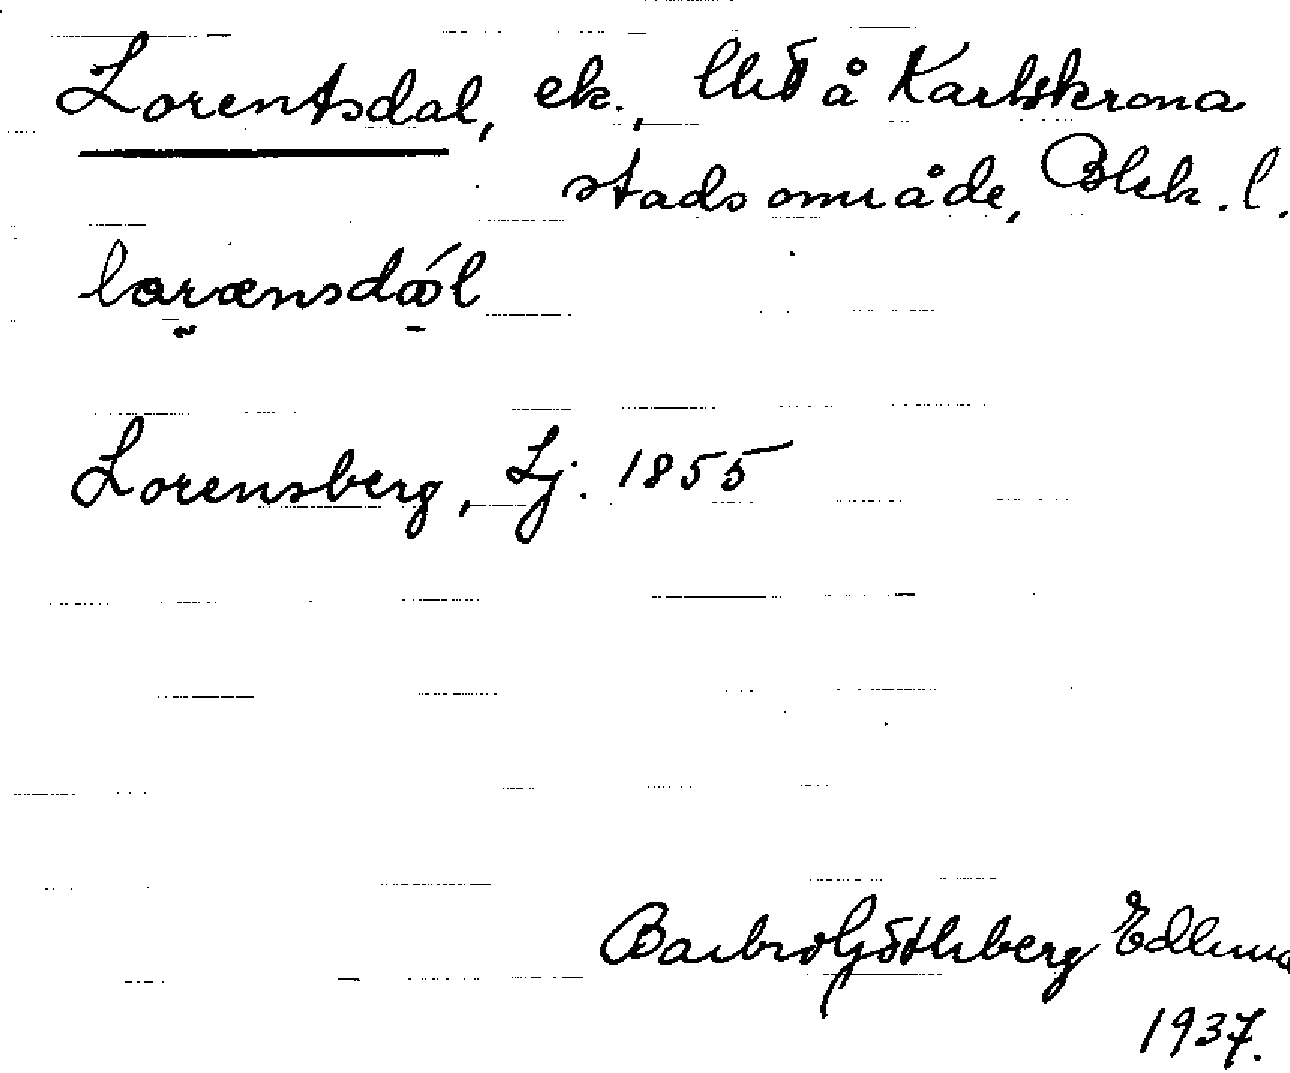 Lorentsdal, ek., å Karlskrona
stadsområde, Blek. l.
lorænsdál
Lorensberg, Lj. 1855
Barbro Göthberg Edlund
1937.